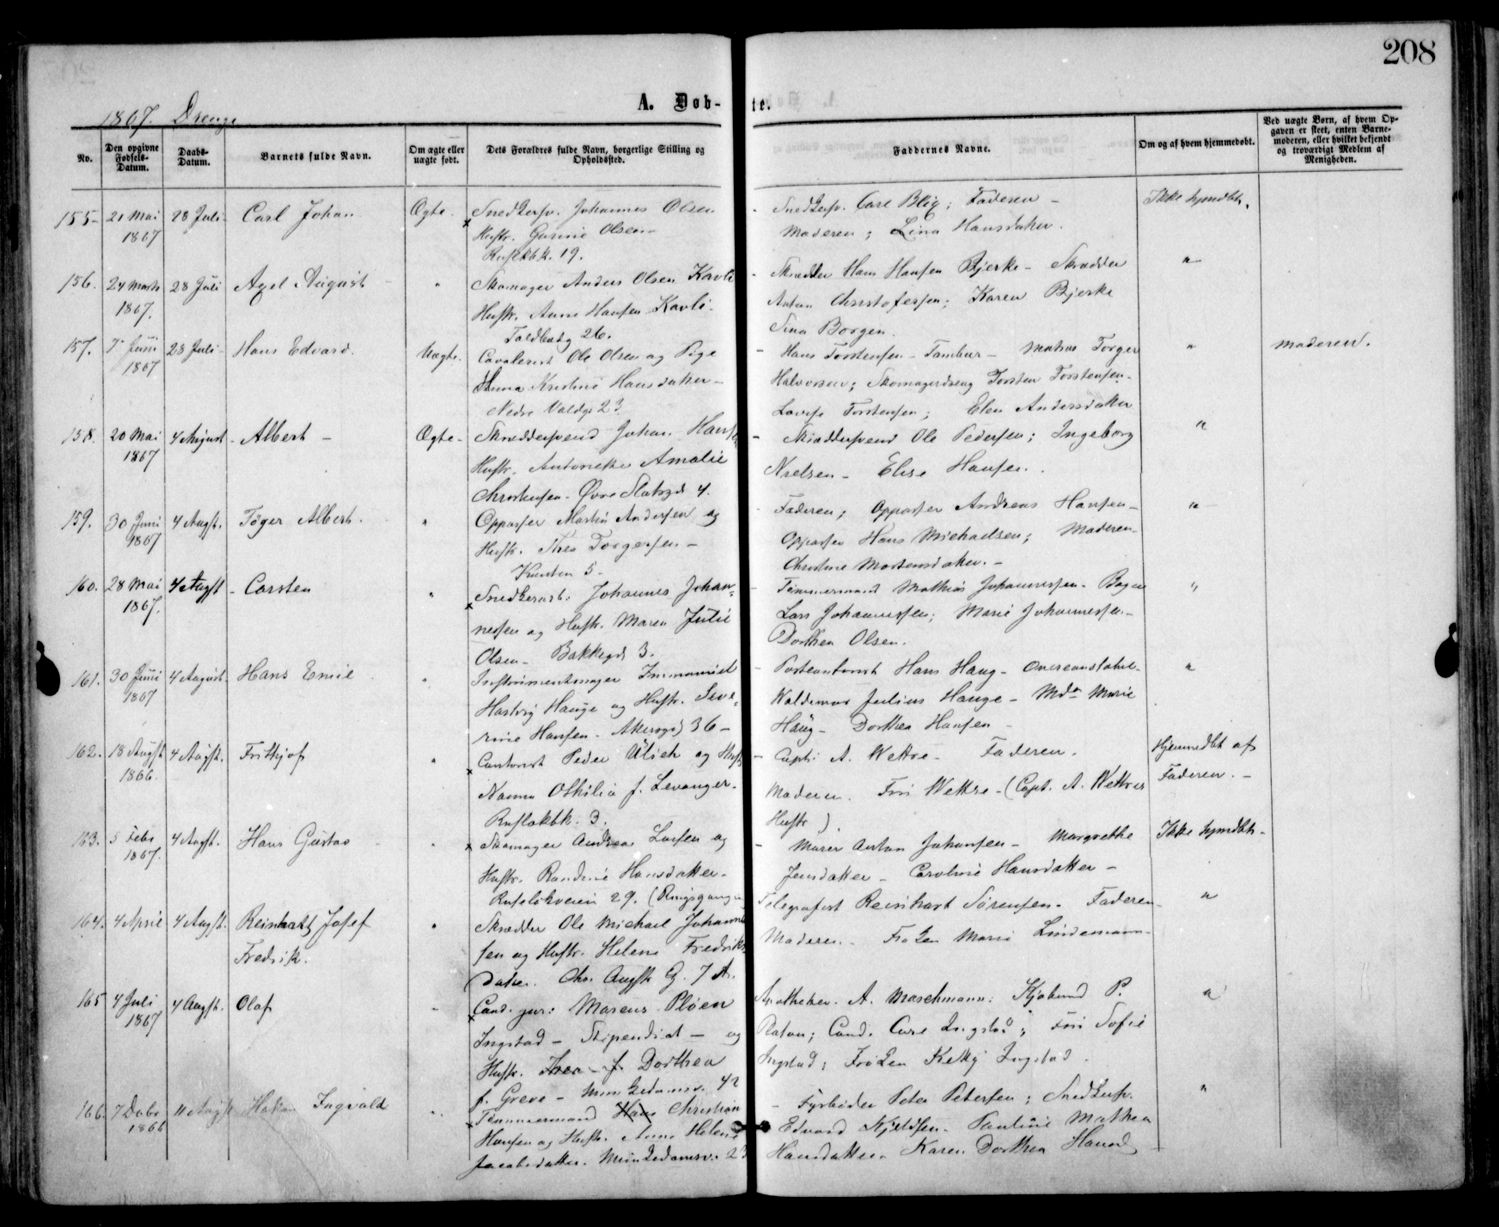 208
A. Døbte.
1867. Drenge
No.
Den opgivne Fødsels-Datum.
Daabs-Datum.
Barnets fulde Navn.
Om ægte eller uægte født.
Dets Forældres fulde Navn, borgerlige Stilling og Opholdssted.
Faddernes Navne.
Om og af hvem hjemmedøbt.
Ved uægte Børn, af hvem Opgaven er skeet, enten Barnemoderen, eller hvilket bekjendt og troværdigt Medlem af Menigheden.
155. 21 Mai 28 Juli Carl Johan Ægte. Snedkersv. Johannes Olsen
1867 Hustr. Olsen
Rusløkbk. 19.
Snedkersv. Carl Faderen - Ikke hjmdbt.
Moderen; Lina Hansdatter.
156. 24 Marts 28 Juli Axel August " Skomager Anders Olsen Kavli
1867. Hustr. Anne Hansen Kavli.
Toldbodg 26.
Skrædder Hans Hansen Bjerke - Skrædder "
Anton Christofersen; Karen Bjerke
Sina Borgen.
157. 7 Juni 28 Juli Hans Edvard. Uægte. Ole Olsen og Pige
1867 Anna Kristine Hansdatter -
Nedre Voldg. 23
Hans Torstensen - Tambur - Matros Torger " Moderen.
Halvorsen; Skomagerdreng Torsten Torstensen -
Lovise Torstensen; Elen Andersdatter
158. 20 Mai 4 August - Albert - Ægte - Skræddersvend Johan Hansen
1867 Hustr. Amalie
Christensen - Øvre Slotsgd 4.
Skræddersvend Ole Pedersen; Ingeborg "
Nielsen - Elise Hansen.
159. 30 Juni 4 Augst. Tøger Albert. " Oppasser Martin Andersen og
1867 Hustr. Torgersen -
5 -
Faderen; Oppasser Andreas Hansen - "
Oppasser Hans Michaelsen; Moderen -
Christine Mortensdatter. -
160. 28 Mai 4 Augst - Carsten " Snedkersv. Johannes Johan-
1867. nesen og Hustr. Maren Julie
Olsen - Bakkegd 3.
Tømmermand Mathias Johannesen - Bager "
Lars Johannessen; Marie Johannessen -
Dorthea Olsen.
161. 30 Juni 4 August Hans Emil " Instrumentmager Immanuel
1867 Hartvig Hauge og Hustr. Seve-
rine Hansen - Akersgd 36 -
Hans Haug - "
Waldemar Julius Hauge - Mda Marie
Haug - Dorthea Hansen -
162. 18 Augst 4 Augst. Frithjof " Contorist Peder Ulich og Hustr
1866. Nanna Othilia f. Levanger.
Rusløkbk. 3.
Capt. A. Wettre - Faderen. Hjemmedbt af
Moderen. Fru Wettre - (Capt. A. Wettres Faderen. -
Hustr).
163. 5 Febr 4 Augst. Hans Gustav Skomager Andreas Larsen og
1867. Hustr. Randine Hansdatter -
Rusløkveien 29. (Ringsgangen
Murer Anton Johansen - Margrethe Ikke hjmdbt -
Jensdatter - Caroline Hansdatter -
164. 4 April 4 Augst. Reinhart Josef " Skrædder Ole Michael Johanne-
Fredrik. sen og Hustr. Helene Fredriks-
datter. Chr. Augsts G. 7 A.
Telegrafist Reinhart Sørensen - Faderen - "
Moderen - Frøken Marie Lindemann -
165 4 Juli 4 Augst. Olaf " Cand. jur: Marcus Pløen
1867 Ingstad - Stipendiat - og
Hustr. Thea - f. Dorthea
f. Greve - Munkedamsv. 42
Apotheker A. Maschmann; Kjøbmd P. "
Platou; Cand. Carl Ingstad; Fru Sofie
Ingstad; Frøken Ketty Ingstad.
166. 7 Decbr 11 Augst Hakon Ingvald " Tømmermand Hans Christian
1866 Hansen og Hustr. Anne Helene
Jacobsdatter. Munkedamsv. 23
Fyrbøder Peter Petersen; Snedkersv. "
Edvard - Pauline Mathea
Hansdatter Karen Dorthea